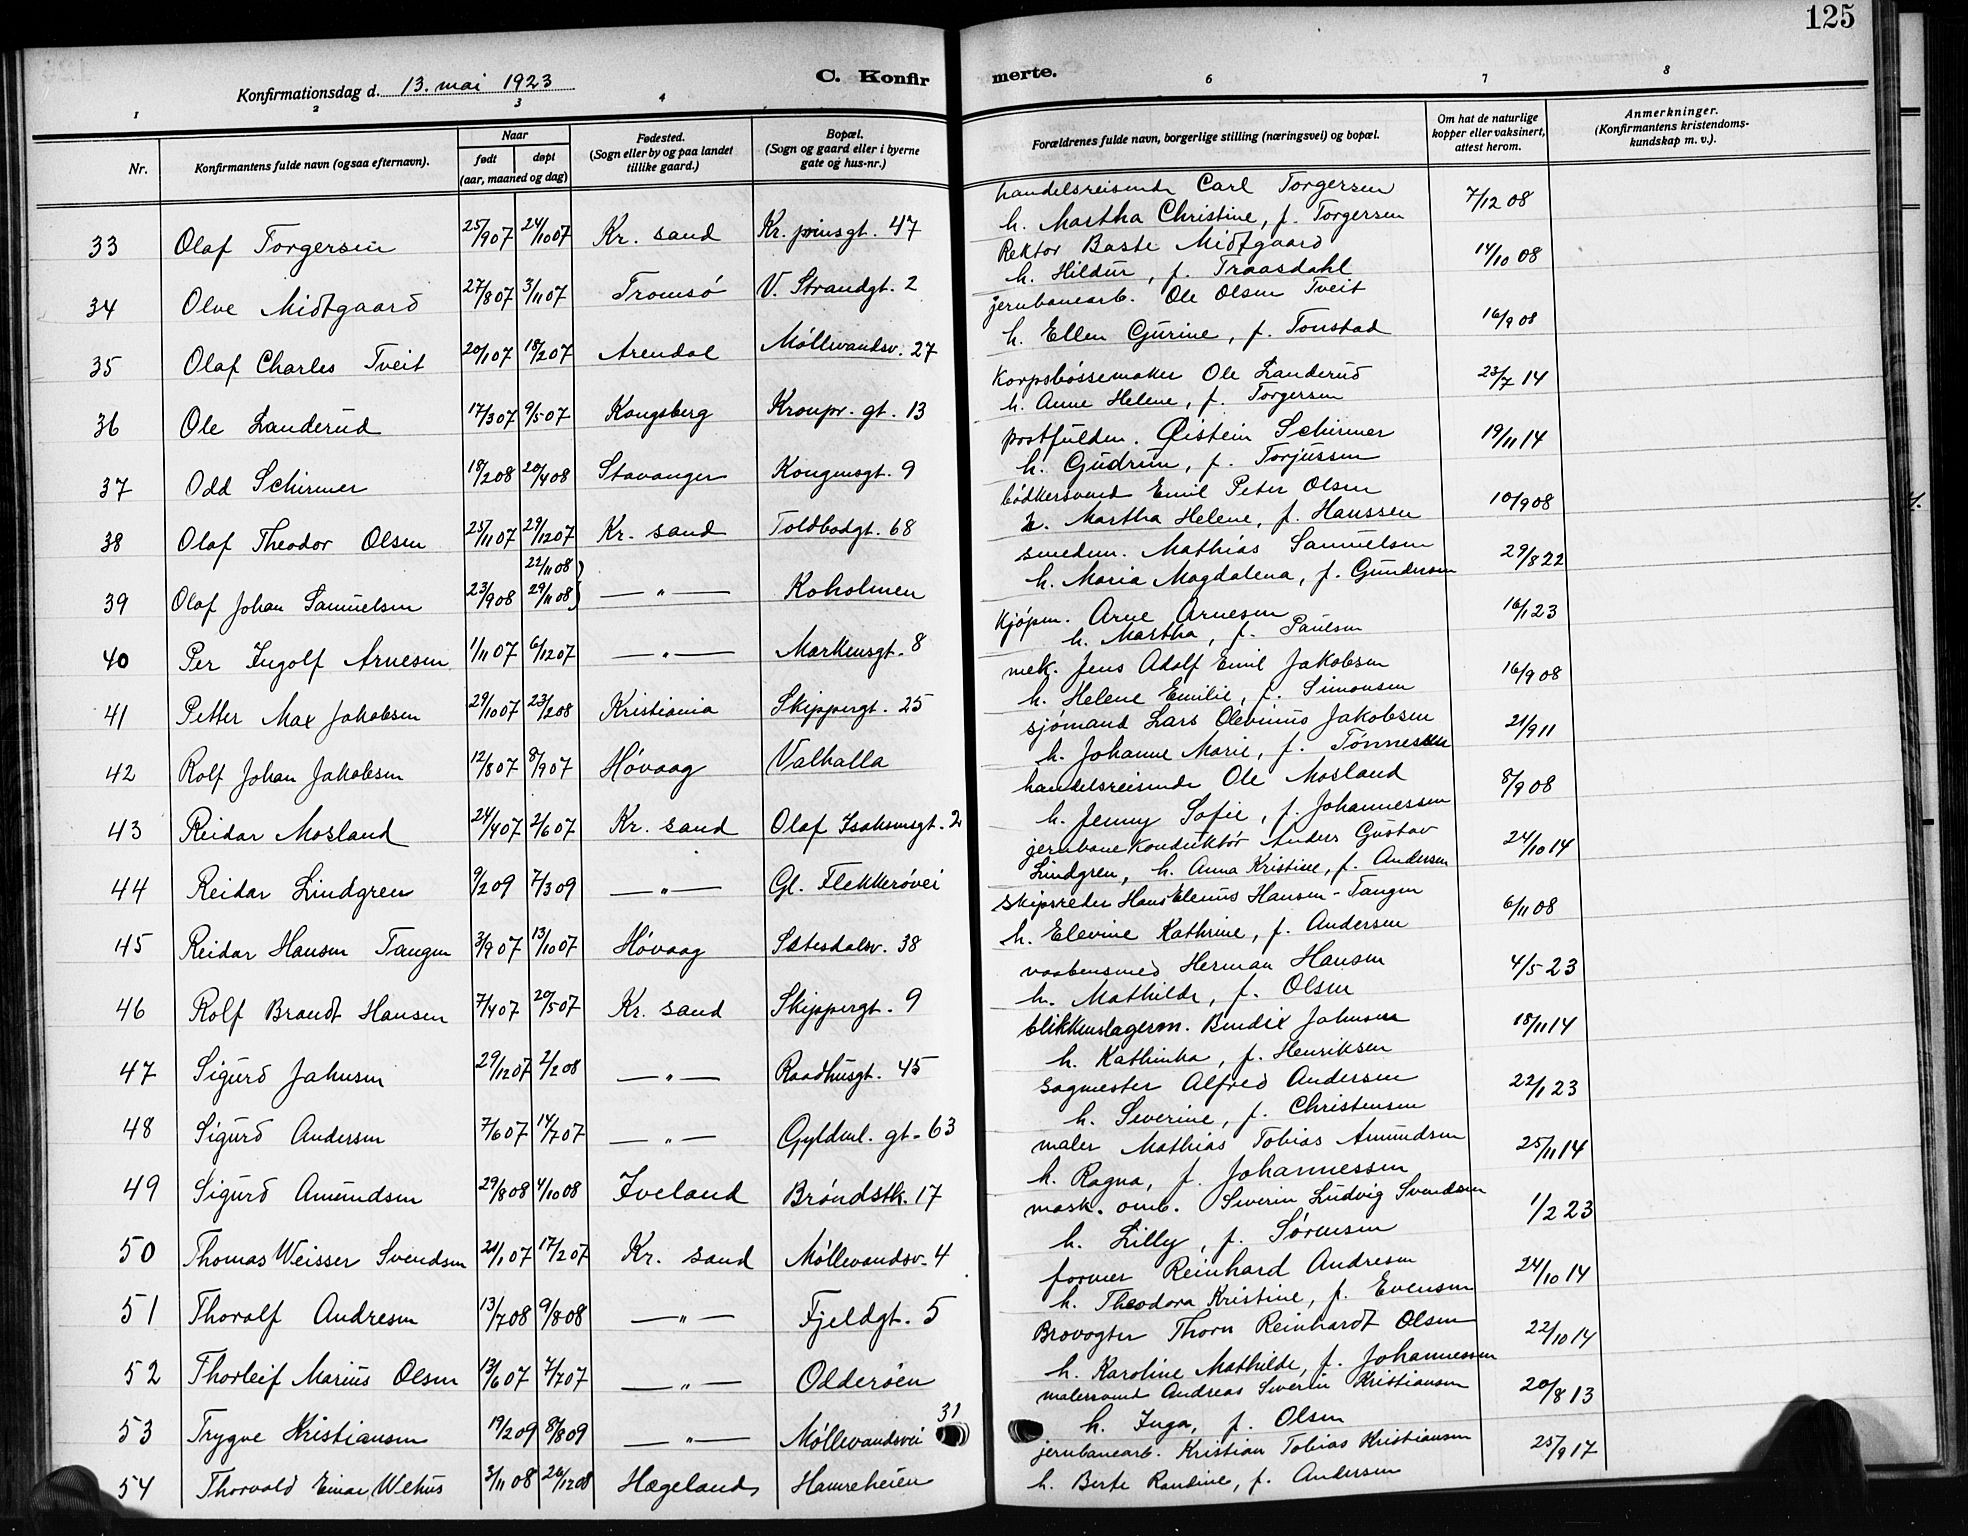 125
Konfirmationsdag d. 13. mai 1923
C. Konfirmerte.
1 2 3 4 6 7 8
Nr.
Konfirmantens fulde navn (ogsaa efternavn).
Naar
født døpt
(aar, maaned og dag)
Fødested.
(Sogn eller by og paa landet
tillike gaard.)
Bopæl.
(Sogn og gaard eller i byerne
gate og hus-nr.)
Forældrenes fulde navn, borgerlige stilling (næringsvei) og bopæl.
Om hat de naturlige
kopper eller vaksinert,
attest herom.
Anmerkninger.
(Konfirmantens kristendoms-
kundskap m. v.).
33 Olaf Torgersen 25/9 07 24/10 07 Kr. sand Kr. prinsgt. 47
handelsreisende Carl Torgersen 7/12 08
h. Martha Christine, f. Torgersen
34 Olve Midtgaard 27/8 07 3/11 07 Tromsø V. Strandgt. 2
Rektor Baste Midtgaard 14/10 08
h. Hildur, f. Traasdahl
35 Olaf Charles Tveit 20/1 07 18/2 07 Arendal Møllevandsv. 27
jernbanearb. Ole Olsen Tveit 16/9 08
h. Ellen Gurine, f. Tonstad
36 Ole Landerud 17/3 07 9/5 07 Kongsberg Kronpr. gt. 13
Korpsbøssemaker Ole Landerud 23/7 14
h. Anne Helene, f. Torgersen
37 Odd Schirmer 18/2 08 20/4 08 Stavanger Kongensgt. 9
postfuldm. Øistein Schirmer 19/11 14
h. Gudrun, f. Torjussen
38 Olaf Theodor Olsen 25/11 07 29/12 07 Kr. sand Toldbodgt. 68
bødkersvend Emil Peter Olsen 10/9 08
h. Martha Helene, f. Hanssen
22/11 08)
39 Olaf Johan Samuelsen 23/9 08 29/11 08) — " — Koholmen
smedm. Mathias Samuelsen 29/8 22
h. Maria Magdalena, f. Gundersen
40 Per Ingolf Arnesen 1/11 07 6/12 07 — " — Markensgt. 8
Kjøpm. Arne Arnesen 16/1 23
h. Martha, f. Paulsen
41 Petter Max Jakobsen 29/10 07 23/2 08 Kristiania Skippergt. 25
mek. Jens Adolf Emil Jakobsen 16/9 08
h. Helene Emilie, f. Simonsen
42 Rolf Johan Jakobsen 12/8 07 8/9 07 Høvaag Valhalla
sjømand Lars Olevinus Jakobsen 21/9 11
h. Johanne Marie, f. Tønnesen
43 Reidar Mosland 24/4 07 2/6 07 Kr. sand Olaf Isaksensgt. 2
handelsreisende Ole Mosland 8/9 08
h. Jenny Sofie, f. Johannessen
44 Reidar Lindgren 9/2 09 7/3 09 — " — Gl. Flekkerøvei
jernbane konduktør Anders Gustav 24/10 14
Lindgren, h. Anna Kristine, f. Andersen
45 Reidar Hansen Tangen 3/9 07 13/10 07 Høvaag Sætesdalsv. 38
Skipsreder Hans Elenius Hansen-Tangen 6/11 08
h. Elevine Kathrine, f. Andersen
46 Rolf Brandt Hansen 7/4 07 20/5 07 Kr. sand Skippergt. 9
vaabensmed Herman Hansen 4/5 23
h. Mathilde, f. Olsen
47 Sigurd Jahnsen 29/12 07 2/2 08 — " — Raadhusgt. 45
blikkenslagerm. Bendix Jahnsen 18/11 14
h. Kathinka, f. Henriksen
48 Sigurd Andersen 7/6 07 14/7 07 — " — Gyldenl. gt. 63
Sagmester Alfred Andersen 22/1 23
h. Severine, f. Christensen
49 Sigurd Amundsen 29/8 08 4/10 08 Iveland Brøndstk. 17
maler Mathias Tobias Amundsen 25/11 14
h. Ragna, f. Johannessen
50 Thomas Weisser Svendsen 21/1 07 17/2 07 Kr. sand Møllevandsv. 4
mask. omb. Severin Ludvig Svendsen 1/2 23
h. Lilly, f. Sørensen
51 Thoralf Andresen 13/7 08 9/8 08 — " — Fjeldgt. 5
former Reinhard Andresen 24/10 14
h. Theodora Kristine, f. Evensen
52 Thorleif Marius Olsen 13/6 07 7/7 07 — " — Odderøen
Brovogter Thorn Reinhardt Olsen 22/10 14
h. Karoline Mathilde, f. Johannessen
53 Trygve Kristiansen 19/2 09 8/8 09 — " — Møllevandsvei 31
malersvend Andreas Severin Kristiansen 20/8 13
h. Inga, f. Olsen
54 Thorvald Einar Wehus 3/11 08 26/12 08 Hægeland Hamreheien
jernbanearb. Kristian Tobias Kristiansen 25/9 17
h. Berte Randine, f. Andersen